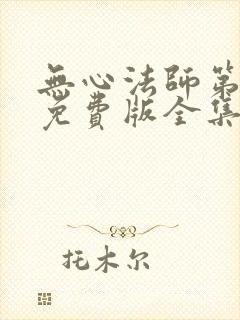 無心法師第
免費版全集
托木尔